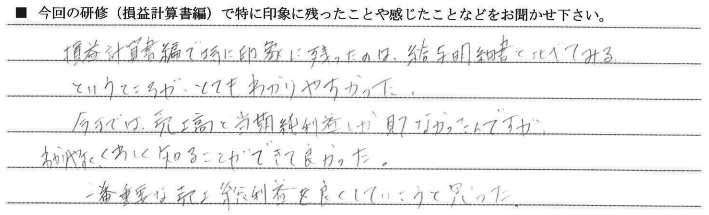 ■ 今回の研修（損益計算書編）で特に印象に残ったことや感じたことなどをお聞かせ下さい。
損益計算書編で特に印象に残ったのは、給与明細書と比べてみる
というところが、とてもわかりやすかった。
今までは、売上高と当期純利益しか見てなかったんですが、
くわしく知ることができて良かった。
一番重要な売上総利益を良くしていこうと思った。